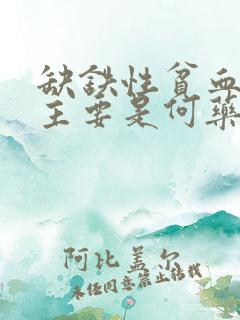 缺铁性贫血
主要是何药
阿比盖尔
未经同意禁止转载